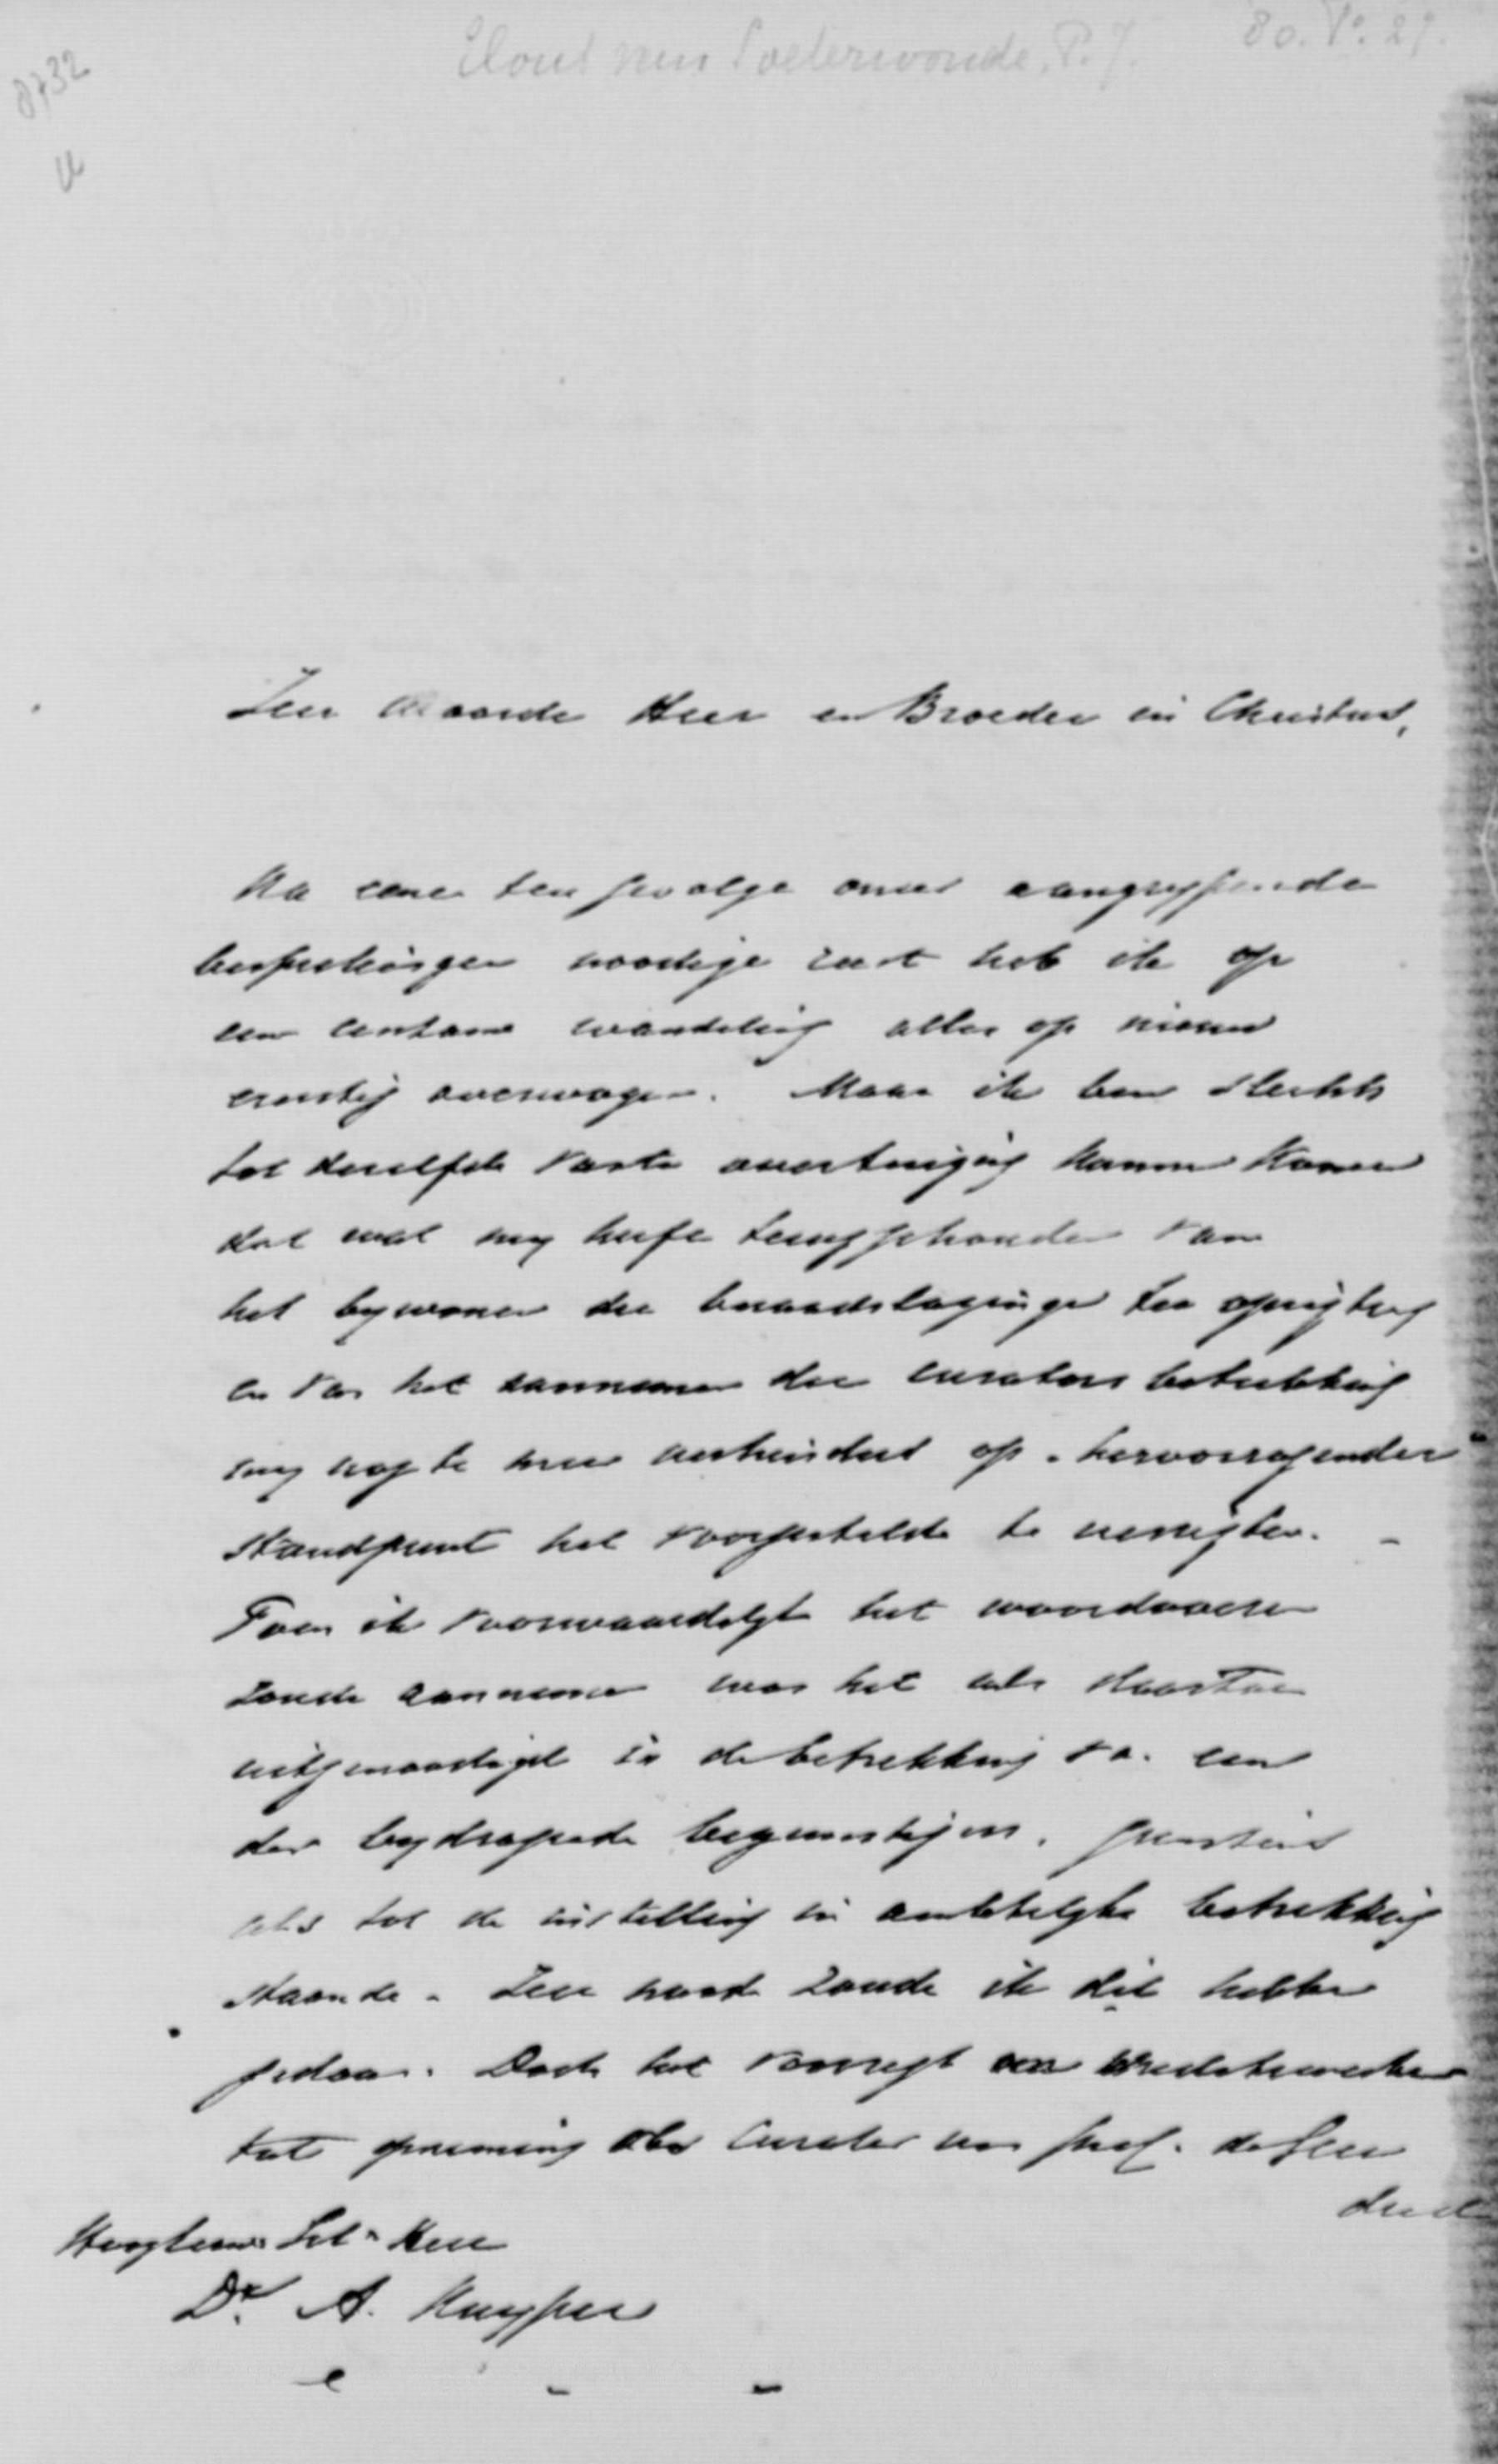 Elout van Soeterwoude, P.J. 80. V°. 29.
8732
U
Zeer Waarde Heer en Broeder in Christus,
Na eene ten gevolge onzer aangrypende
besprekingen noodige rust heb ik op
een eenzame wandeling alles op nieuw
ernstig overwogen. Maar ik ben slechts
tot dezelfde vaste overtuiging kunnen komen
dat wat my heeft teruggehouden van
het bywonen der beraadslagingen ter oprigting
en van het aannemen der curators betrekking
my nog te zeer verhindert op hervorragender
standpunt het voorgestelde te verrigten. -
Toen ik voorwaardelyk het woordvoeren
zoude aannemen was het als daartoe
uitgenoodigd in de betrekking van een
der bydragende begunstigers, geenszins
als tot de instelling in ambtelyke betrekking
staande. Zeer noode zoude ik dit hebben
gedaan. Doch het
tot opneming als Curator van prof. de Geer
Dr. A. Kuyper